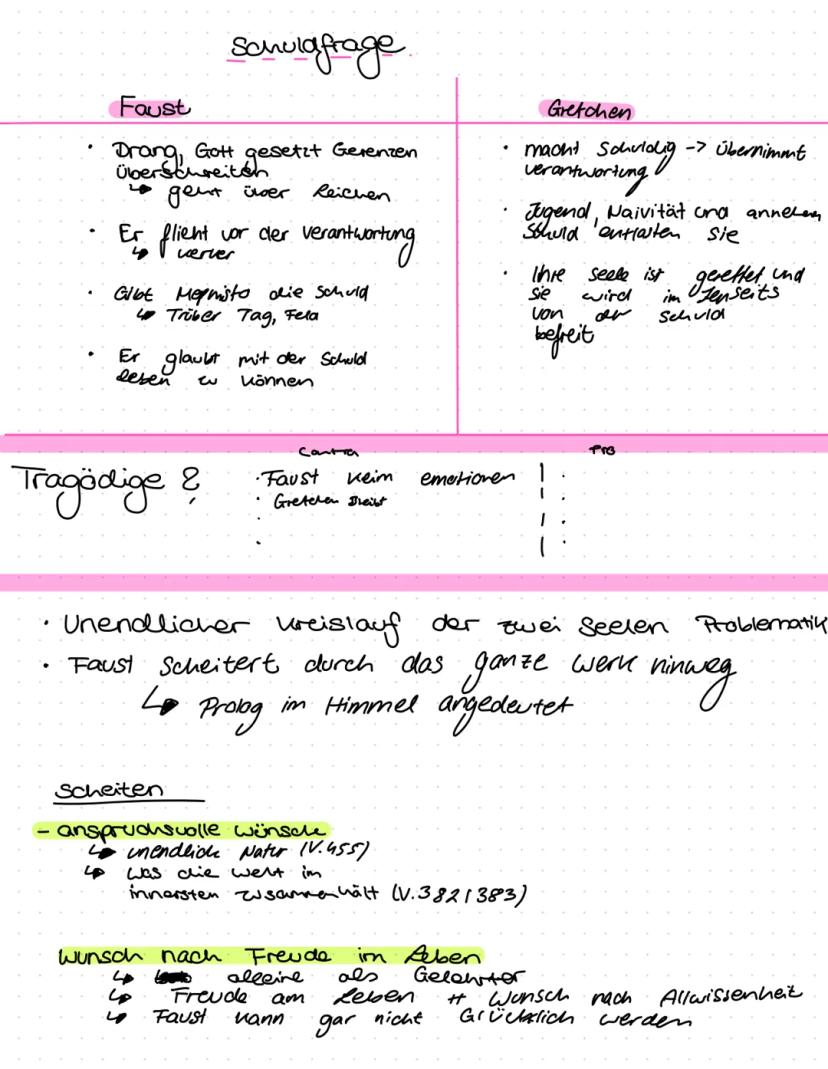 Schuldfrage
Faust
Gretchen
• Drang, Gott gesetzt Gerenzen
überschreiten
↳ geht über Leichen
• Er flieht vor der Verantwortung
↳ Kerker
• Gibt Mephisto die Schuld
↳ Trüber Tag, Feld
• Er glaubt mit der Schuld
leben zu können
• macht Schuldig -> übernimmt
verantwortung
• Jugend, Naivität und
Schuld entlasten sie
• Ihre Seele ist gerettet und
sie wird im Jenseits
von der Schuld
befreit
Contra
Pro
Tragödige ?
• Faust keim emotionen
• Gretchen bleibt
• Unendlicher Kreislauf der zwei Seelen Problematik
• Faust Scheitert durch das ganze Werk hinweg
↳ Prolog im Himmel angedeutet
Scheiten
- anspruchsvolle Wünsche
↳ unendlich Natur (V.455)
↳ was die Welt im
innersten zusammenhält (V.382/383)
Wunsch nach Freude im Leben
↳ alleine als Gelehrter
↳ Freude am Leben Wunsch nach Allwissenheit
↳ Faust kann gar nicht Glücklich werden